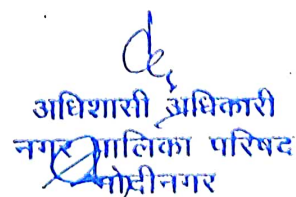 अधिशासी अधिकारी
नगर पालिका परिषद
मोदीनगर